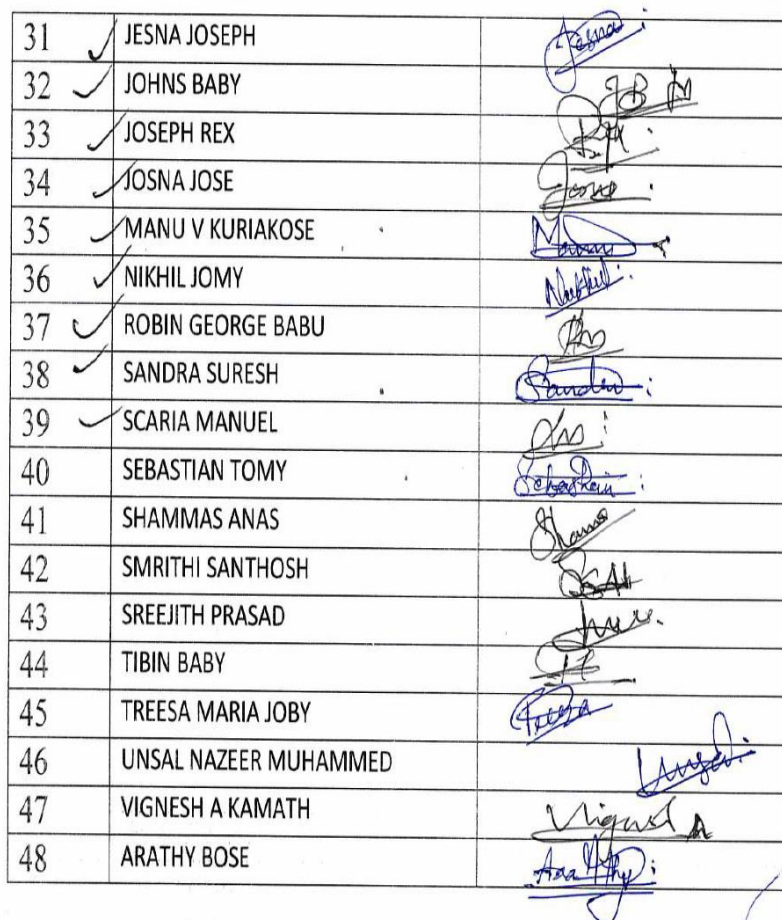 31 JESNA JOSEPH Jesna
32 JOHNS BABY
33 JOSEPH REX Rex
34 JOSNA JOSE
35 MANU V KURIAKOSE Manu
36 NIKHIL JOMY Nikhil
37 ROBIN GEORGE BABU
38 SANDRA SURESH Sandra
39 SCARIA MANUEL
40 SEBASTIAN TOMY Sebastain
41 SHAMMAS ANAS
42 SMRITHI SANTHOSH
43 SREEJITH PRASAD
44 TIBIN BABY
45 TREESA MARIA JOBY Treesa
46 UNSAL NAZEER MUHAMMED
47 VIGNESH A KAMATH
48 ARATHY BOSE